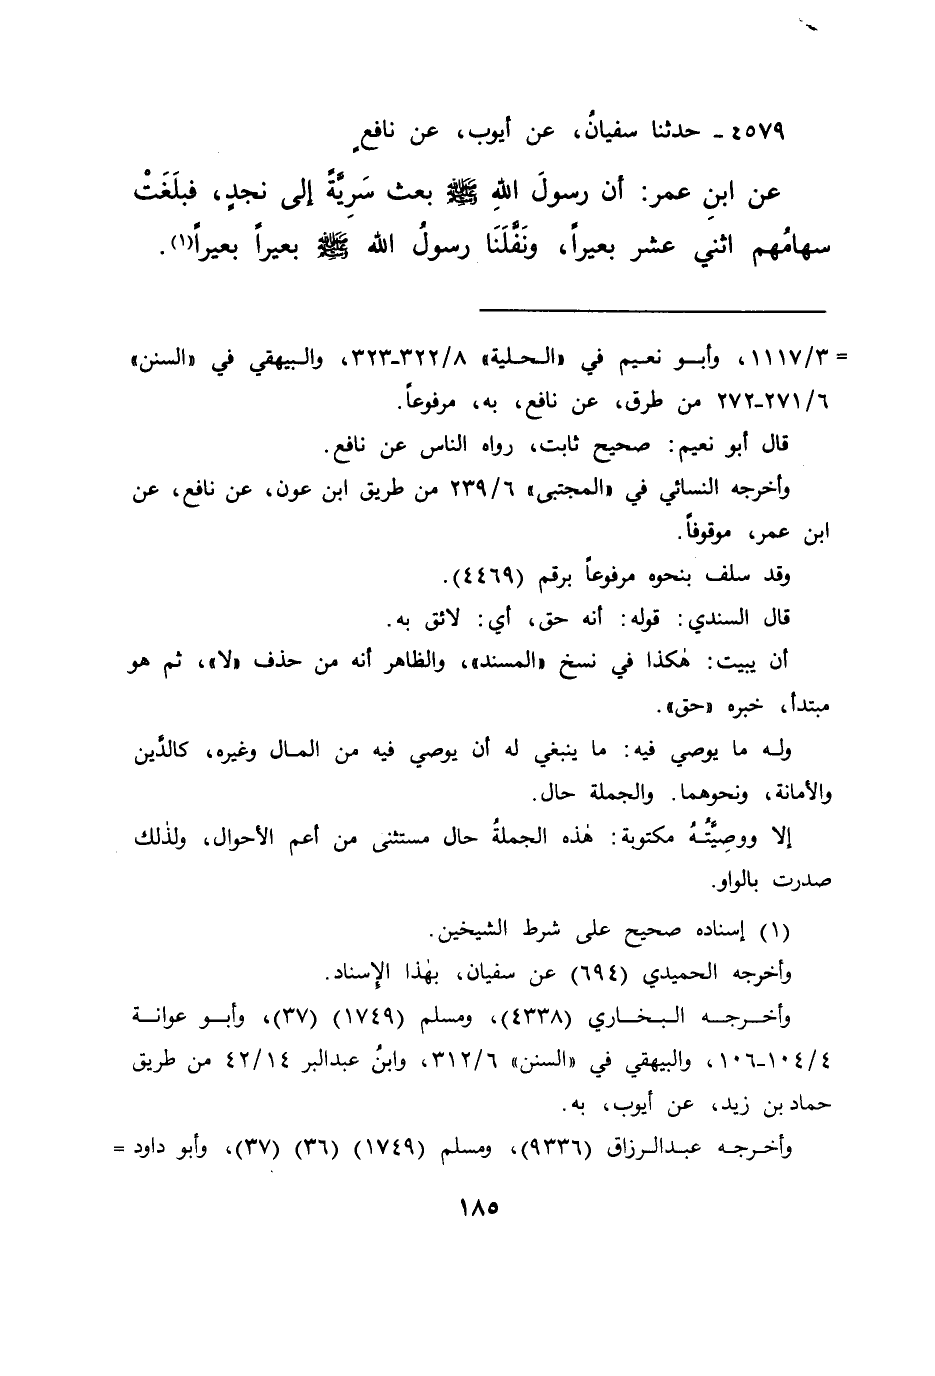 ٤٥٧٩ ـ حدثنا سفيانُ، عن أيوب، عن نافعٍ
عن ابنِ عمر: أن رسولَ اللهِ ﷺ بعث سَرِيَّةً إلى نجدٍ، فبلَغَتْ
سهامُهم اثني عشر بعيراً، ونَفَّلَنَا رسولُ الله ﷺ بعيراً بعيراً(١).
= ١١١٧/٣، وأبو نعيم في «الحلية» ٣٢٢/٨ـ٣٢٣، والبيهقي في «السنن»
٢٧١/٦ـ٢٧٢ من طرق، عن نافع، به، مرفوعاً.
قال أبو نعيم: صحيح ثابت، رواه الناس عن نافع.
وأخرجه النسائي في «المجتبى» ٢٣٩/٦ من طريق ابن عون، عن نافع، عن
ابن عمر، موقوفاً.
وقد سلف بنحوه مرفوعاً برقم (٤٤٦٩).
قال السندي: قوله: أنه حق، أي: لائق به.
أن يبيت: هٰكذا في نسخ «المسند»، والظاهر أنه من حذف «لا»، ثم هو
مبتدأ، خبره «حق».
وله ما يوصي فيه: ما ينبغي له أن يوصي فيه من المال وغيره، كالدَّين
والأمانة، ونحوهما. والجملة حال.
إلا ووصِيَّتُهُ مكتوبة: هٰذه الجملةُ حال مستثنى من أعم الأحوال، ولذٰلك
صدرت بالواو.
(١) إسناده صحيح على شرط الشيخين.
وأخرجه الحميدي (٦٩٤) عن سفيان، بهٰذا الإسناد.
وأخرجه البخاري (٤٣٣٨)، ومسلم (١٧٤٩) (٣٧)، وأبو عوانة
١٠٤/٤ـ١٠٦، والبيهقي في «السنن» ٣١٢/٦، وابنُ عبدالبر ٤٢/١٤ من طريق
حماد بن زيد، عن أيوب، به.
وأخرجه عبدالرزاق (٩٣٣٦)، ومسلم (١٧٤٩) (٣٦) (٣٧)، وأبو داود =
١٨٥